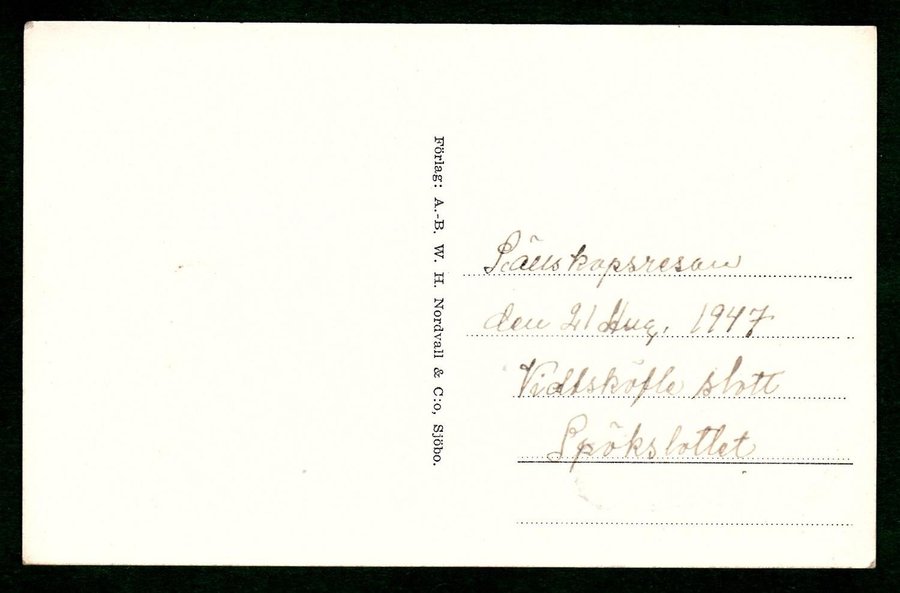 Förlag: A.-B. W. H. Nordvall & C:o, Sjöbo.
Sällskapsresan
den 21 Aug. 1947
Vidtsköfle slott
Spökslottet